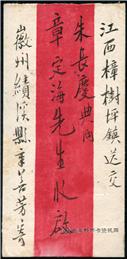 江西樟樹坪鎮送交
朱長慶典內
章定海先生收啟
徽州績溪縣章茗芳寄